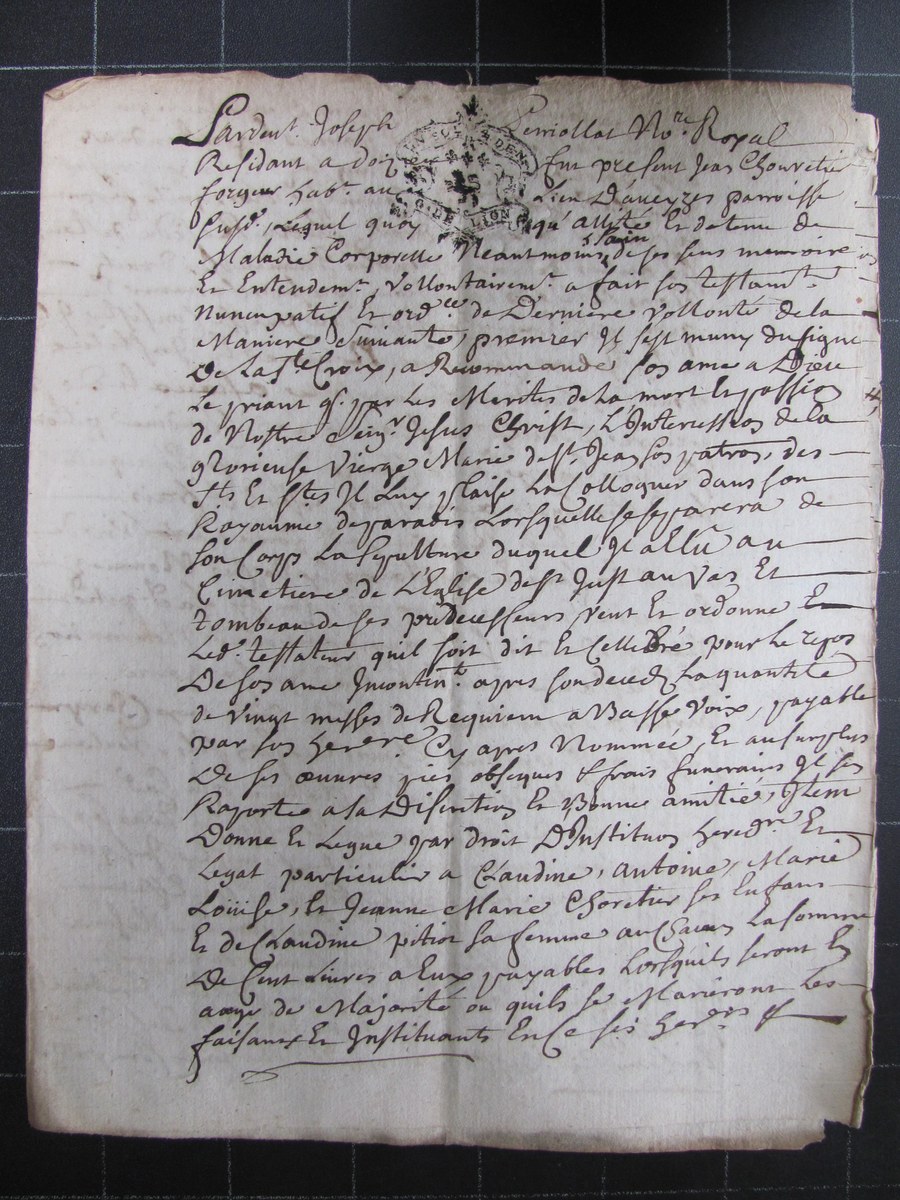 Pardevt. Joseph Perriollat Nore. Royal
Residant a Doi fut present Jean Chorretier
forgeur habt. au Lieu D'aveyzes parroisse
susd., Lequel quoy qu'allité Et detenu de
Maladie Corporelle Neantmoins sain de ses sens memoire
Et Entendemt., vollontairemt. a fait son testamt.
nuncupatif Et ordce. de Derniere vollonté de la
Maniere Suivante, premier Il s'est muny du signe
De la Ste Croix, a Recommandé son ame a Dieu
Le priant q. par les Merites de la mort Et passion
de Nostre Seigr. Jesus Christ, L'Intercession de la
glorieuse Vierge Marie de st. Jean son patron, des
sts Et stes Il Luy plaise La Colloquer dans son
Rayaume de paradis Lorsquelle se separera de
son Corps La sepulture duquel Il a Ellû au
Cimetiere de L'Eglise de st. Just au Vas Et
tombeau de ses predecesseurs, Veut Et ordonne
Led. testateur quil soit dit Et Cellebré pour Le repos
De son ame Incontint. apres son deced La quantité
de vingt messes de Requiem a Basse Voix, payable
par son herere Cy apres Nommée, Et au surplus
De ses œuvres pies obseques & frais funeraires Il s'en
Raporte a sa Discretion Et Bonne amitié, Item
Donne Et Legue par droit D'Instituon heredre Et
Legat particulier a Claudine, Antoine, Marie
Loüise, Et Jeanne Marie Chorretier ses Enfans
Et de Claudine pitiot sa femme au Chacun La somme
De Cent Livres a Eux payables Lorsquils seront En
aage de Majorité ou quils se Marieront Les
faisant Et Instituants En Ce ses herers